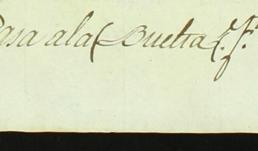 Pasa ala Buelta